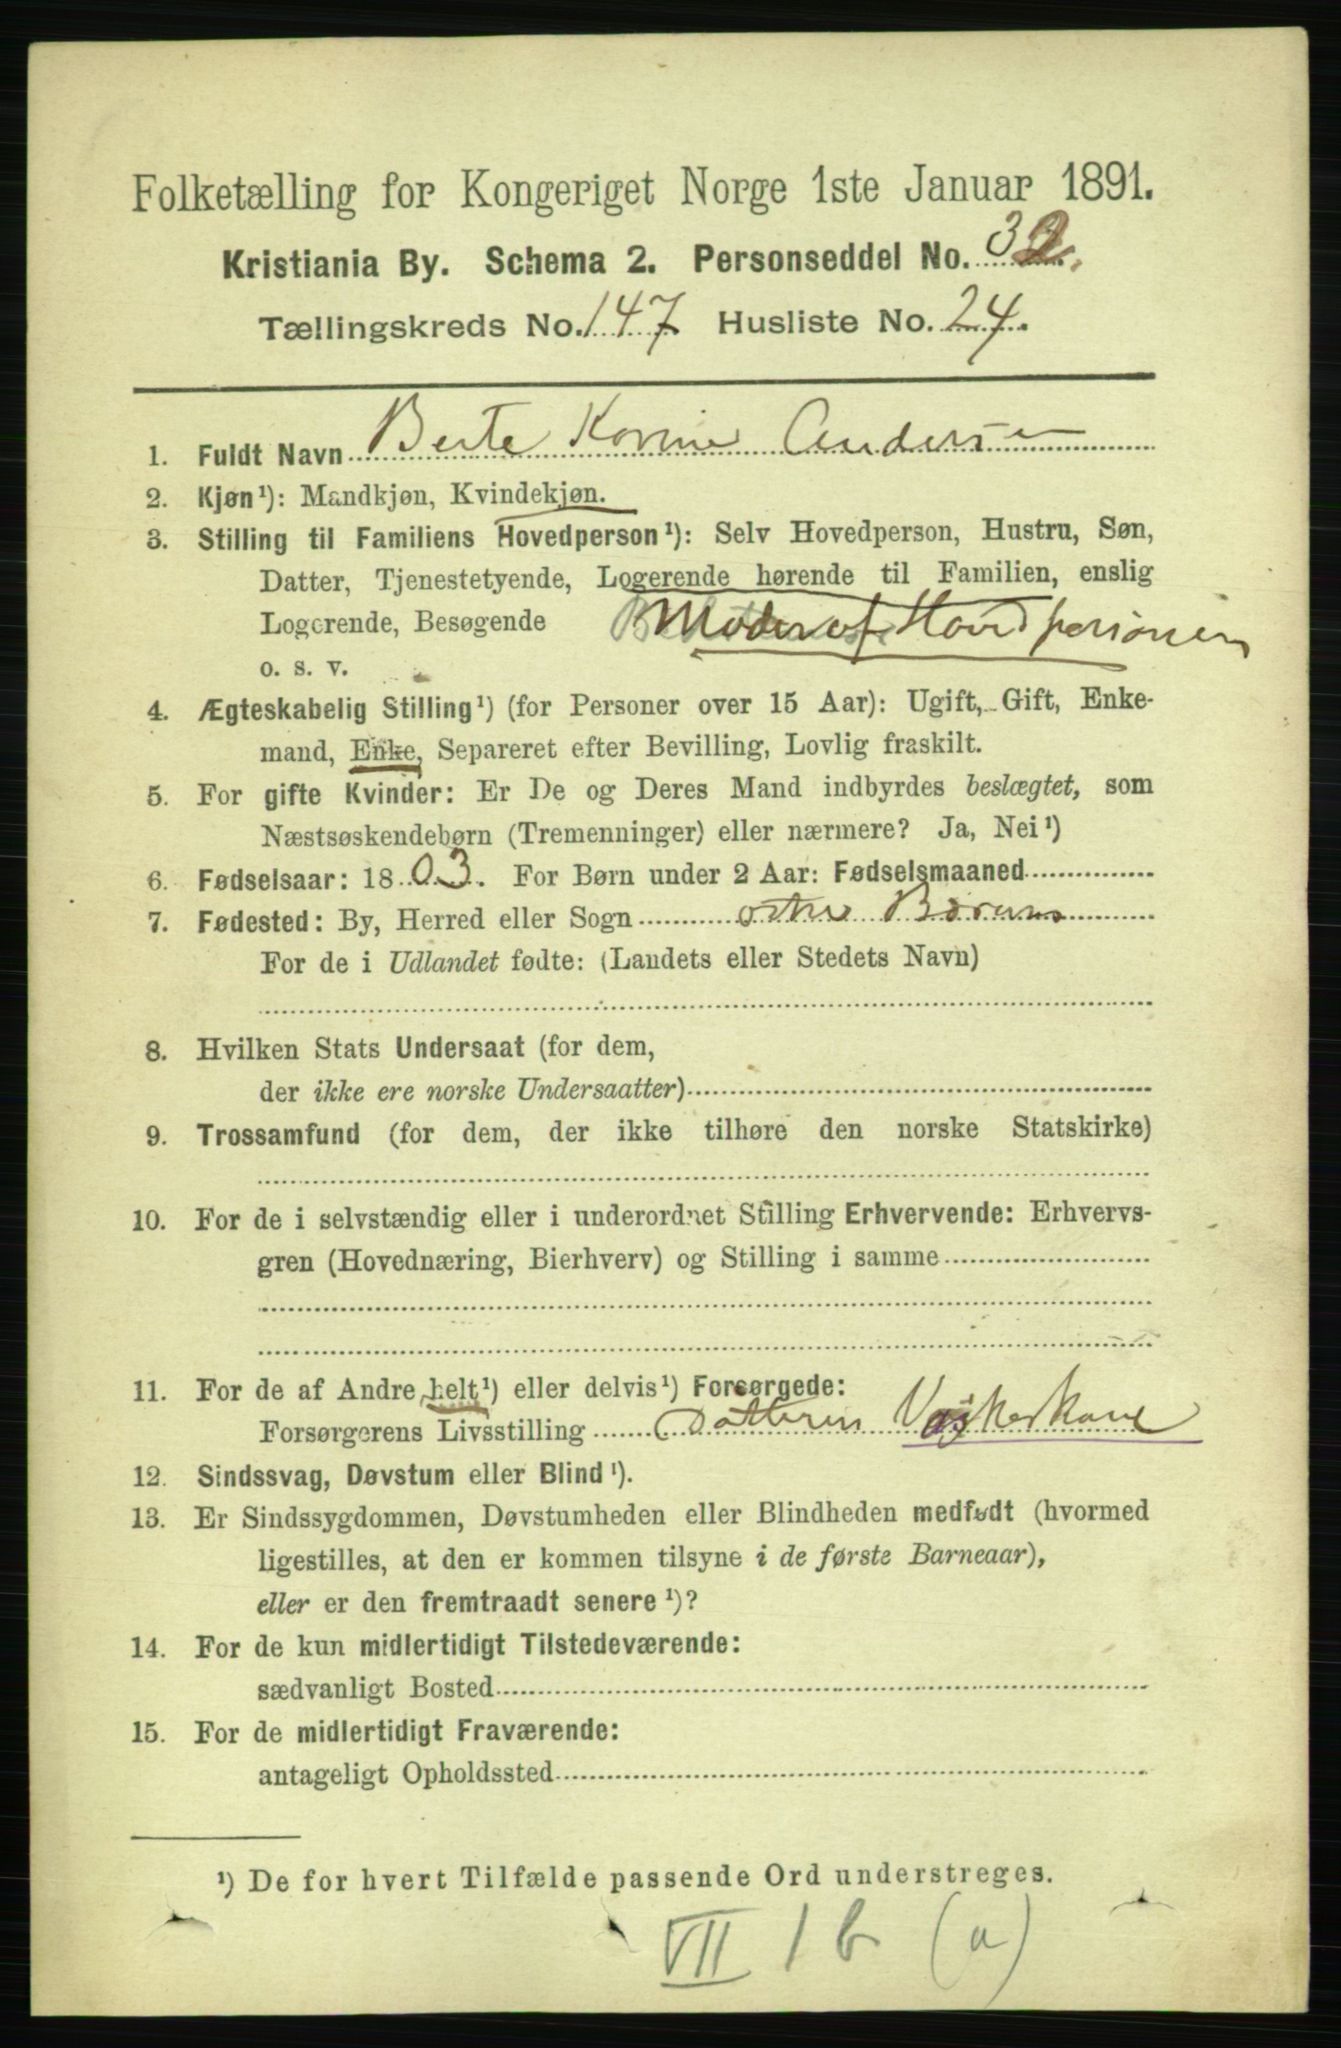 Folketælling for Kongeriget Norge 1ste Januar 1891.
Kristiania By. Schema 2. Personseddel No. 32.
Tællingskreds No. 147 Husliste No. 24.
1. Fuldt Navn Berte Karine Andersen
2. Kjøn¹): Mandkjøn, Kvindekjøn.
3. Stilling til Familiens Hovedperson¹): Selv Hovedperson, Hustru, Søn,
Datter, Tjenestetyende, Logerende hørende til Familien, enslig
Logerende, Besøgende Moder af Hovedpersonen
o. s. v.
4. Ægteskabelig Stilling¹) (for Personer over 15 Aar): Ugift, Gift, Enke-
mand, Enke, Separeret efter Bevilling, Lovlig fraskilt.
5. For gifte Kvinder: Er De og Deres Mand indbyrdes beslægtet, som
Næstsøskendebørn (Tremenninger) eller nærmere? Ja, Nei¹)
6. Fødselsaar: 1803. For Børn under 2 Aar: Fødselsmaaned
7. Fødested: By, Herred eller Sogn østre Bærum
For de i Udlandet fødte: (Landets eller Stedets Navn)
8. Hvilken Stats Undersaat (for dem,
der ikke ere norske Undersaatter)
9. Trossamfund (for dem, der ikke tilhøre den norske Statskirke)
10. For de i selvstændig eller i underordnet Stilling Erhvervende: Erhvervs-
gren (Hovednæring, Bierhverv) og Stilling i samme
11. For de af Andre helt¹) eller delvis¹) Forsørgede:
Forsørgerens Livsstilling Datteren Vaskerkone
12. Sindssvag, Døvstum eller Blind¹).
13. Er Sindssygdommen, Døvstumheden eller Blindheden medfødt (hvormed
ligestilles, at den er kommen tilsyne i de første Barneaar),
eller er den fremtraadt senere¹)?
14. For de kun midlertidigt Tilstedeværende:
sædvanligt Bosted
15. For de midlertidigt Fraværende:
antageligt Opholdssted
¹) De for hvert Tilfælde passende Ord understreges.
VII 1 b (a)